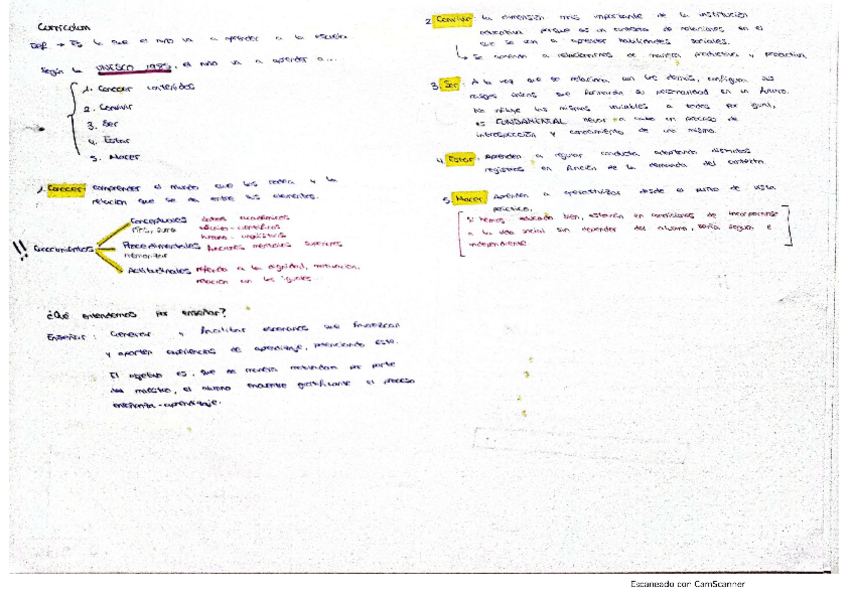 Currículum
DEF → Es lo que el niño va a aprender a la escuela
Según la UNESCO 1985, el niño va a aprender a...
1. Conocer contenidos
2. Convivir
3. Ser
4. Estar
5. Hacer
1. Conocer: comprender el mundo que les rodea y la
relación que se da entre los elementos.
!! Conocimientos
Conceptuales
Procedimentales
memorizar
funciones mentales superiores
Actitudinales referido a la dignidad, motivación,
relación con los iguales
¿Qué entendemos por enseñar?
Enseñar: Generar y Analizar escenarios que favorezcan
y aporten experiencias de aprendizaje, potenciando este.
El objetivo es, que de manera motivada por parte
del maestro, el alumno encuentre gratificante el proceso
enseñanza-aprendizaje.
2. Convivir: la dimensión más importante de la institución
educativa porque es un contexto de relaciones en el
que se van a aprender habilidades sociales.
↳ Se aprende a relacionarnos de manera productiva y proactiva
3. Ser: A la vez que se relaciona con los demás, configura sus
rasgos únicos que formarán su personalidad en un futuro.
No influye las mismas variables a todos por igual,
es FUNDAMENTAL llevar a cabo un proceso de
introspección y conocimiento de uno mismo.
4. Estar: Aprenden a regular conducta adoptando distintos
registros en función de la demanda del contexto
5. Hacer: Aprenden a desde el punto de vista
práctico.
Si hemos educado bien, estarán en condiciones de incorporarse
a la vida social sin depender del alumno, segura e
independiente
Escaneado con CamScanner